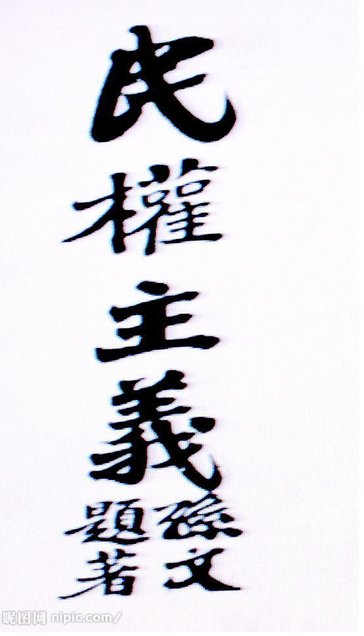 民權主義
孫文
題著
昵图网 nipic.com/